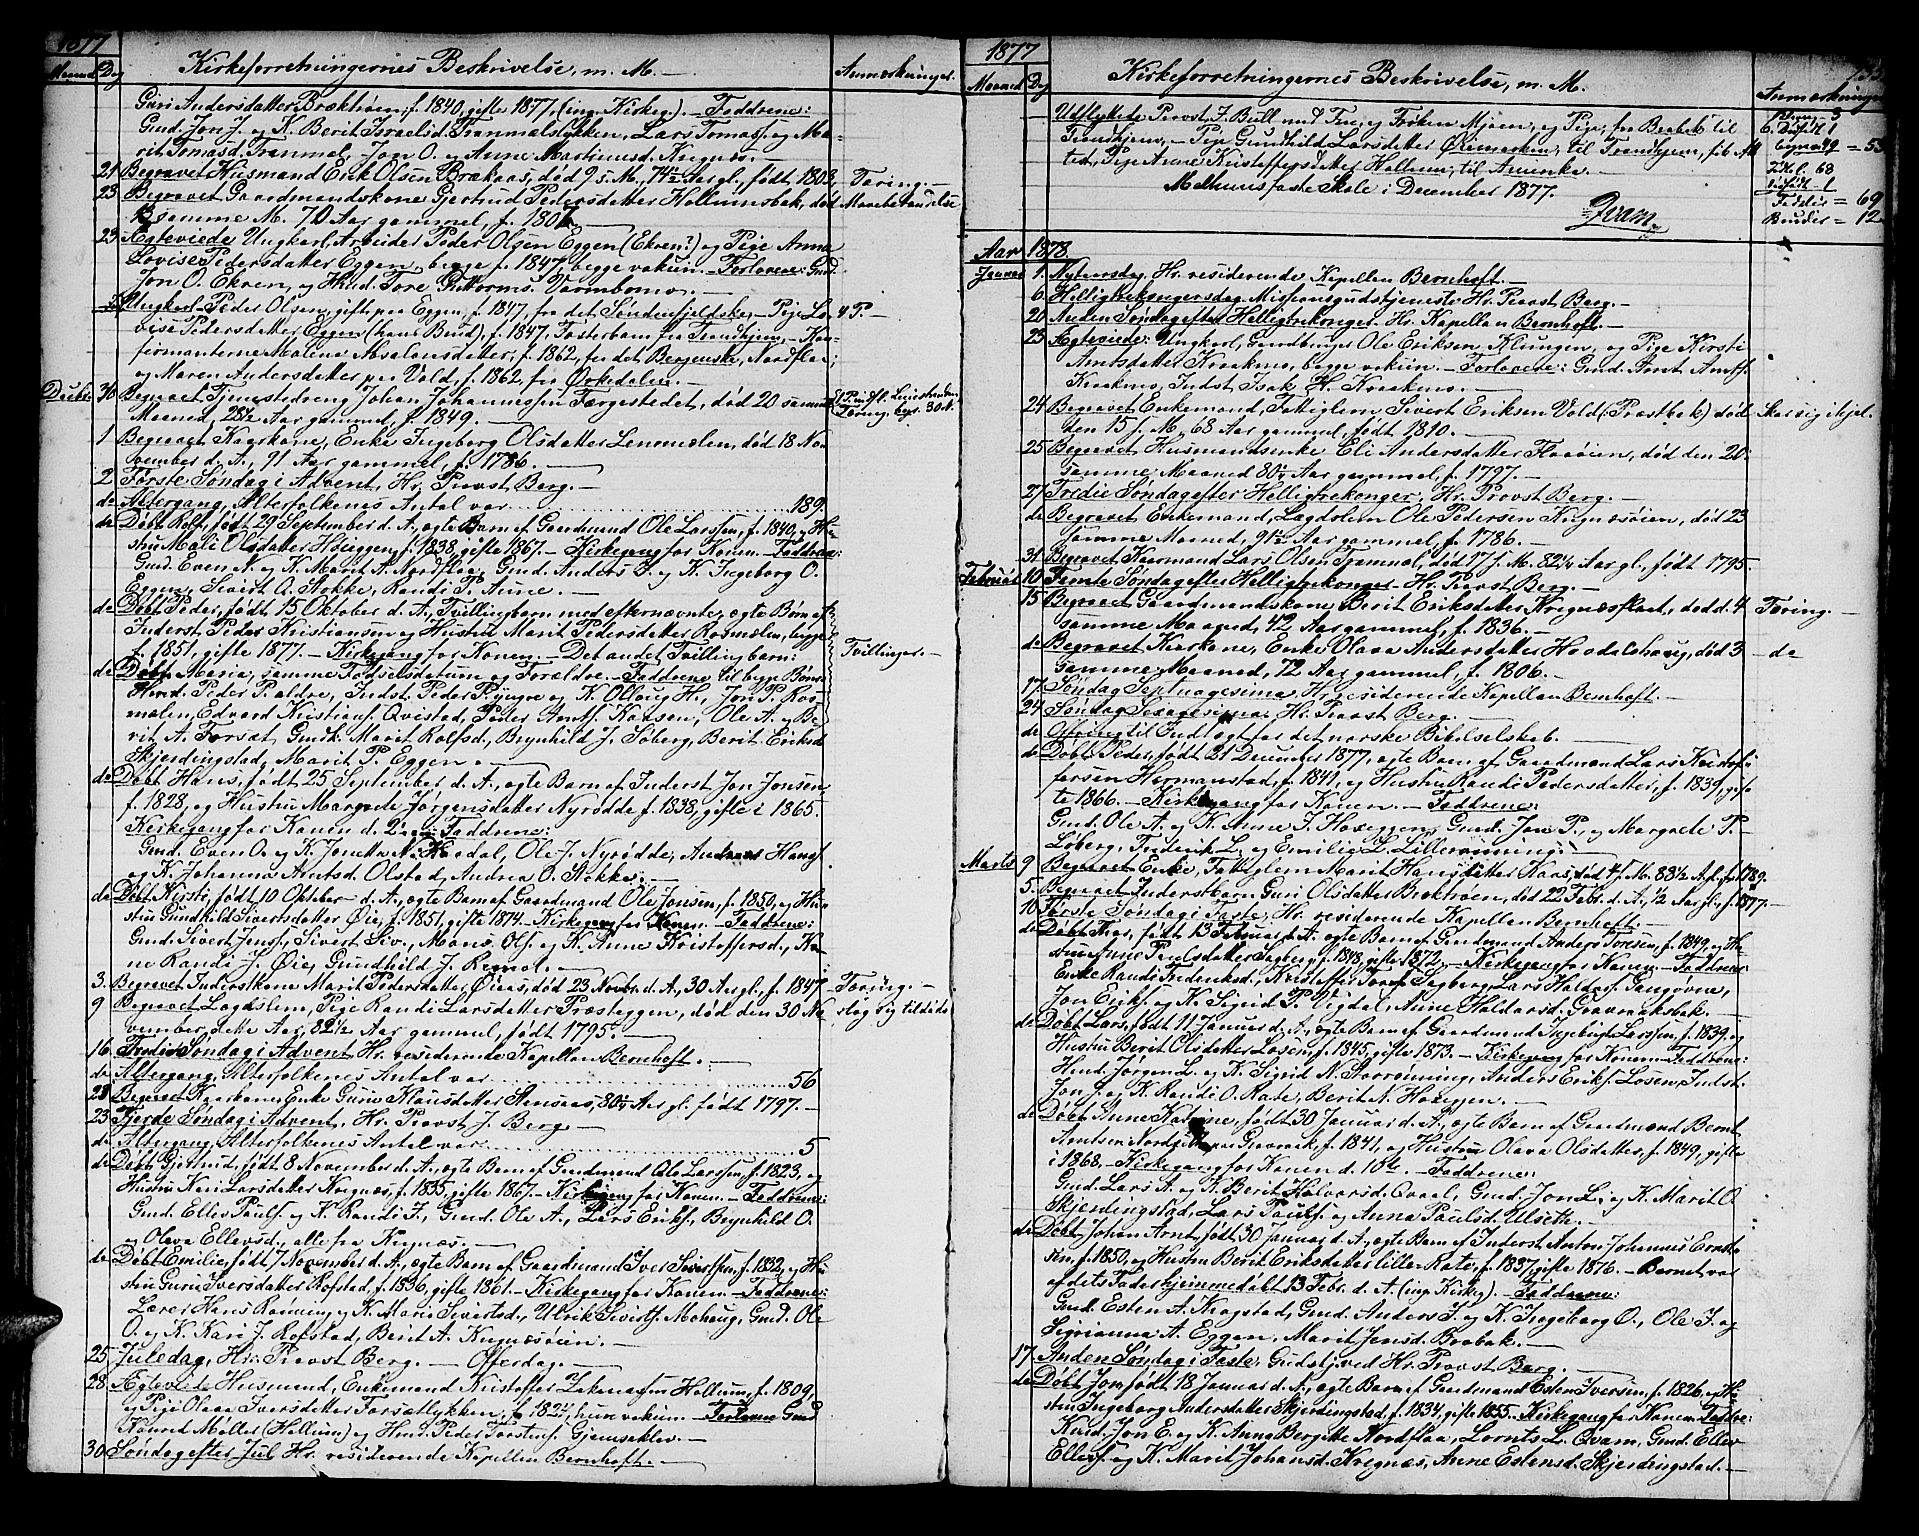 1877
Maaned Dag Kirkeforretningernes Beskrivelse, m. M. — Anmærkninger.
Guri Andersdatter Bræktrøen, f. 1840, gifte 1877, (ing. Kirkeg.). — Faddrene:
Gmd. Jon J. og K. Berit Israelsd. Tranmælstykken, Lars Tomasf. og Ma-
rit Tomasd. Tranmæl, Jon O. og Anne Mastiansd. Kregnæs. —
21 Begravet Husmand Erik Olsen Brækaas, død 9 s. M., 74½ Aar gl., født 1803. Taring. —
23 Begravet Gaardmandskone Gjertrud Pedersdatter Hollumsbak, død
samme M. 70 Aar gammel, f. 1807.
23 Ægteviede Ungkarl, Arbeider Peder Olsen Eggen (Ekren?) og Pige Anna
Lovise Pedersdatter Eggen, begge f. 1847, begge vakun. — Forlovere: Gmd.
Jon O. Ekren, og Hmd. Tore Guttorms. Varmbomo. —
Ungkarl Peder Olsen, gifte paa Eggen, f. 1847, fra det Søndenfjeldske, — Pige Lo- 4 P. —
vise Pedersdatter Eggen (hans Brud), f. 1847, Fosterbarn fra Trondhjem, — Kon-
firmanterne Malena Absalonsdatter, f. 1862, fra det Bergenske, Nordflaa;
og Maren Andersdatter paa Vold, f. 1862, fra Ørkedalen. —
Decbr. 30 Begravet Tjenestedreng Johan Johannessen Færgestedet, død 20 samme
Maaned, 28½ Aar gammel, f. 1849. —
1 Begravet Kaarkone, Enke Ingeborg Olsdatter Lenmælen, død 18 No-
vember d. A., 91 Aar gammel, f. 1786. —
2 Første Søndag i Advent, Hr. Provst Berg. —
do Altergang, Alterfolkenes Antal var 189.
do Døbt Rolf, født 29 September d. A., ægte Barn af Gaardmand Ole Larssen, f. 1840, og Hu-
stru Mali Olsdatter Høieggen, f. 1838, gifte 1867. — Kirkegang for Konen. — Faddrene:
Gmd. Even N. og K. Marit A. Nordflaa, Gmd. Anders J. og K. Ingeborg O.
Eggen, Sivert O. Nokke, Randi P. Aune. —
do Døbt Peder, født 15 Oktober d. A., Tvillingbarn med efternævnte, ægte Børn af
Inderst Peder Kristiansen og Hustru Marit Pedersdatter Rosmælen, begge
f. 1851, gifte 1877. — Kirkegang for Konen. — Det andet Tvillingbarn: Tvillinger. —
do Døbt Maria, samme Fødselsdatum og Forældre. — Faddrene til begge Børn:
Hmd. Peder P. Ældre, Indst. Peder P. yngre og K. Ollaug H., Jon P. Ros-
mælen, Edvard Kristians. Qvistad, Peder Arntf. Kaasen, Ole A. og Be-
rit A. Forsæt, Gmdk. Marit Rolfsd., Brynhild J. Søberg, Berit Eriksd.
Skjerdingstad, Marit P. Eggen. —
do Døbt Hans, født 25 September d. A., ægte Barn af Inderst Jon Jonsen,
f. 1828, og Hustru Margrede Jørgensdatter Nyrødde, f. 1838, gifte i 1865.
Kirkegang for Konen d. 2. — Faddrene:
Gmd. Even O. og K. Jonetta N. Hoodal, Ole J. Nyrødde, Andreas Hansf.
og K. Johanna Arntsd. Olstad, Andrea O. Nokke. —
do Døbt Kirsti, født 10 Oktober d. A., ægte Barn af Gaardmand Ole Jonsen, f. 1850, og Hu-
stru Gunhild Sivertsdatter Øie, f. 1851, gifte 1874. — Kirkegang for Konen. — Faddrene:
Gmd. Sivert Jensf., Sivert Siv., Mons Olf. og K. Anne Kristoffersd., Ko-
ne Randi J. Øie, Gunhild J. Remol. —
3. Begravet Inderstkone Marit Pedersdatter Øiaas, død 23 Novbr. d. A., 30 Aar gl., f. 1847. Taring. —
9 Begravet Lægdslem, Pige Randi Larsdatter Prosteggen, død den 30 No- slog sig tildøde
vember, dette Aar, 82½ Aar gammel, født 1795. —
16 Tredie Søndag i Advent, Hr. residerende Kapellan Bernhoft. —
do Altergang, Alterfolkenes Antal var 56
20 Begravet Kaarkone Enke Guru Klausdatter Stensaas, 80¼ Aar gl. født 1797. —
23 Fjerde Søndag i Advent, Hr. Provst J. Berg. —
do Altergang, Alterfolkenes Antal var 5
do Døbt Gjertrud, født 8 November d. A., ægte Barn af Gaardmand Ole Larssen, f. 1823, og
Hustru Kari Larsdatter Kregnæs, f. 1835, gifte 1867. — Kirkegang for Konen. — Faddrene:
Gmd. Ellev Paulsf. og K. Randi F., Gmd. Ole A., Lars Eriks., Brynhild O.
og Olava Ellevsd., alle fra Kregnæs. —
do Døbt Emilie, født 7 November d. A., ægte Barn af Gaardmand Iver Sivertsen, f. 1832, og Hu-
stru Guru Iversdatter Rofstad, f. 1836, gifte 1861. — Kirkegang for Konen. — Faddrene:
Lærer Hans Rønning og K. Marie Sivertsd., Ulrik Sivertf. Mohaug, Gmd. Ole
O. og K. Kari J. Rofstad, Berit A. Kregnæsøien. —
25 Juledag, Hr. Provst Berg. — Offerdag. —
28 Ægteviede Husmand, Enkemand Kristoffer Zakariassen Hollum, f. 1809,
og Pige Olava Iversdatter Forsætlykken, f. 1824, hun vakun. — Forlovere Gmd.
Konrad Møller (Hollum) og Hmd. Peder Torstens. Gjemseklev. —
30 Søndag efter Jul Hr. residerende Kapellan Bernhoft. —
1877
Maaned Dag Kirkeforretningernes Beskrivelse, m. M. Anmærkninger
Udflyttede Provst J. Bull med Fru, og Frøken Mjøen, og Pige, fra Berbet til
Trondhjem, — Pige Gunhild Larsdatter Øiemarken, til Trondhjem,
Pige Anne Kristoffersdatter Hollum, til Amerika. —
Melhuus faste Skole i December 1877.
Qvam.
6. Døbt 1
49 = 55
68
1
Fødte = 69
Brudev. = 12
Aar 1878.
Januar 1. Nytaarsdag. Hr. residerende Kapellan Bernhoft. —
6 Helligtrekongersdag. Missionsgudstjeneste. Hr. Provst Berg. —
20 Anden Søndag efter Helligtrekonger. Hr. Kapellan Bernhoft. —
23 Ægteviede: Ungkarl, Gaardbruger Ole Eriksen Klungen, og Pige Kirsti
Arntsdatter Kraakmo, begge vakun. — Forlovere: Gmd. Arnt Arntf.
Kraakmo, Indst. Isak H. Kraakmo. —
24 Begravet Enkemand, Fattiglem Sivert Eriksen Vold (Prostbak) død Skar sig ihjel.
den 15 f. M., 68 Aar gammel, født 1810. —
25 Begravet Husmandsenke Eli Andersdatter Flaaøien, død den 20.
samme Maaned 80½ Aar gammel, f. 1797. —
27 Tredie Søndag efter Helligtrekonger, Hr. Provst Berg. —
do Begravet Enkemand, Lægdslem Ole Pedersen Kregnæsøien, død 23
samme Maaned, 91½ Aar gammel, f. 1786. —
31 Begravet Kaarmand Lars Olsen Tranmæl, død 17 f. M. 82¼ Aar gl., født 1795. —
Februar 10 Femte Søndag efter Helligtrekonger. Hr. Provst Berg. —
15 Begravet Gaardmandskone Berit Eriksdatter Kregnæsflaat, død d. 4 Taring. —
samme Maaned, 42 Aar gammel, f. 1836. —
do Begravet Kaarkone, Enke Olava Andersdatter Hoodalshaug, død 3 — do
samme Maaned, 72 Aar gammel, f. 1806. —
17. Søndag Septuagesima Hr. residerende Kapellan Bernhoft. —
24 Søndag Sexagesima, Hr. Provst Berg. —
do Ofring til Indtægt for det norske Bibelselskab. —
do Døbt Peder, født 21 December 1877, ægte Barn af Gaardmand Lars Kristof-
fersen Hermanstad, f. 1841, og Hustru Randi Pedersdatter, f. 1839, gif-
te 1866. — Kirkegang for Konen. — Faddrene:
Gmd. Ole A. og K. Anne J. Høxeggen, Gmd. Jon P. og Margrete P.
Løberg, Frederik L. og Emilie L. Lillerønning. —
Marts 9 Begravet Enke, Fattiglem Marit Hansdatter Kaas, død 4 f. M. 88½ A. gl., f. 1789.
5. Begravet Inderstbarn Guri Olsdatter Bræktrøen, død 22 Feb. d. A., ½ Aar gl., f. 1877. —
10 Første Søndag i Faste, Hr. residerende Kapellan Bernhoft. —
do Døbt Thor, født 13 Februar d. A., ægte Barn af Gaardmand Anders Toresen, f. 1849, og Hu-
stru Anne Paulsdatter Sagberg, f. 1848, gifte 1872. — Kirkegang for Konen. — Faddrene:
Enke Randi Frederiksd., Kristoffer Toref. Sagberg, Lars Haldorf. Tangøvne,
Jon Erikf. og K. Sigrid P. Vigdal, Anne Haldorsd. Gravraaksbak. —
do Døbt Lars, født 11 Januar d. A., ægte Barn af Gaardmand Ingebrigt Larssen, f. 1839, og
Hustru Berit Olsdatter Losen, f. 1845, gifte 1873. — Kirkegang for Konen. — Faddrene:
Hmd. Jørgen L. og K. Sigrid N. Storrønning, Anders Erikf. Losen, Indst.
Jon J. og K. Randi O. Rate, Berit N. Høxeggen. —
do Døbt Anne Katrine, født 30 Januar d. A., ægte Barn af Gaardmand Bernt
Arntsen Nordflaa paa Gravraak, f. 1841, og Hustru Olava Olsdatter, f. 1849, gifte
i 1868. — Kirkegang for Konen d. 10de. — Faddrene:
Gmd. Lars A. og K. Berit Halvarsd. Qvaal, Gmd. Jon L. og K. Marit O.
Skjerdingstad, Lars Paulf. og Anna Paulsd. Ulseth. —
do Døbt Johan Arnt, født 30 Januar d. A., ægte Barn af Inderst Anton Johannes Ernt-
sen, f. 1850, og Hustru Berit Eriksdatter Lille Rate, f. 1837, gifte 1876. — Barnet var
af dets Fader hjemmedøbt 13 Febr. d. A. (ing Kirkg). — Faddrene:
Gmd. Esten A. Krogstad, Gmd. Anders J. og K. Ingeborg O., Ole J. og
Sigrianna A. Eggen, Marit Jensd. Brobak. —
17. Anden Søndag i Faste; Gudstj. ved Hr. Provst Berg. —
do Døbt Jon, født 18 Januar d. A., ægte Barn af Gaardmand Esten Iversen, f. 1826, og Hu-
stru Ingeborg Andersdatter Skjerdingstad, f. 1834, gifte 1855. Kirkegang for Konen. Faddre:
Gmd. Jon E. og K. Anna Bergitte Nordflaa, Lornts L. Qvam, Gmd. Ellev
Ellevf. og K. Marit Johansd. Kregnæs, Anne Estensd. Skjerdingstad. —